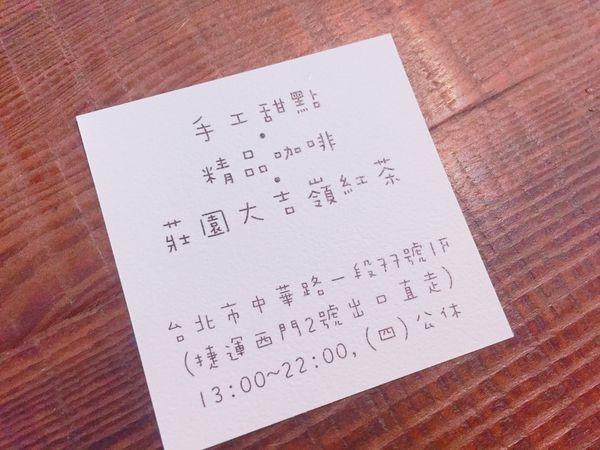 手工甜點
•
精品咖啡
•
莊園大吉嶺紅茶
台北市中華路一段77號1F
(捷運西門2號出口直走)
13:00~22:00,(四)公休